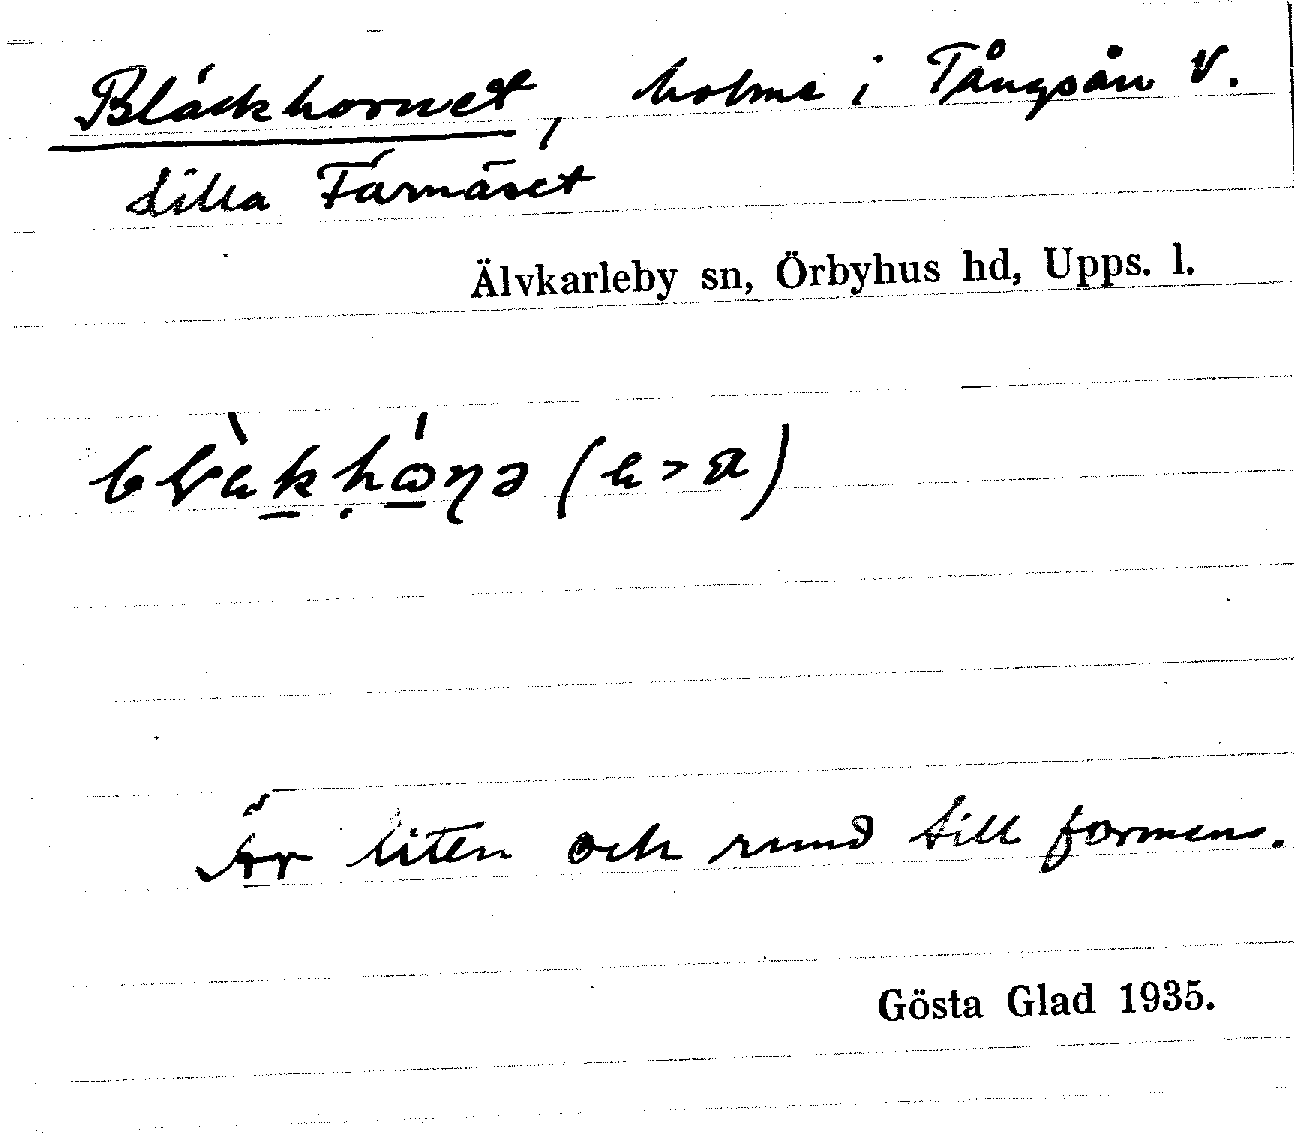 Bläckhornet, holme i Tångsån V.
Lilla Färnäset
Älvkarleby sn, Örbyhus hd, Upps. l.
Är liten och rund till formen.
Gösta Glad 1935.